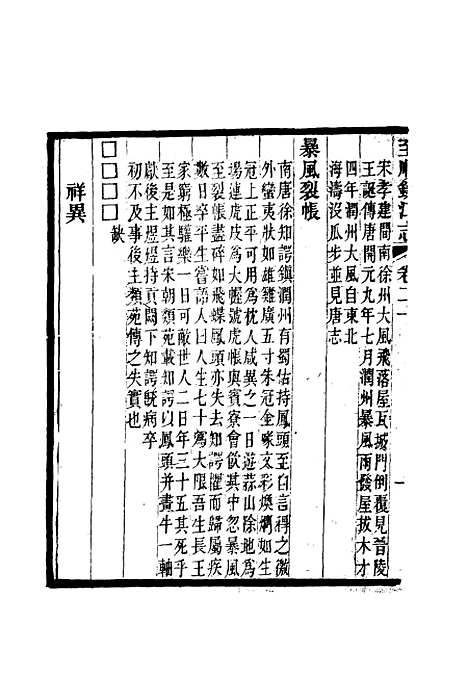 至順鎮江志 卷二十 一
宋孝建間南徐州大風飛落屋瓦城門倒覆見晉陵
王誕傳唐開元九年七月潤州暴風雨發屋拔木才
四年潤州大風自東北
海濤沒瓜步並見唐志
暴風裂帳
南唐徐知諤鎮潤州有蜀估持鳳頭至自言得之徼
外蠻夷狀如雄雞廣五寸朱冠金喙文彩煥爛如生
冠上正平可用為枕人咸異之一日遊蒜山除地為
場連虎皮為大幄號虎帳與賓寮會飲其中忽暴風
至裂帳盡碎如飛蝶鳳頭亦失去知諤懼而歸屬疾
數日卒平生嘗語人曰人生七十為大限吾生長王
家窮極驩樂一日可敵世人二日年三十五其死乎
至是如其言宋朝類苑載知諤以鳳頭并畫牛一軸
獻後主煜煜持貢闕下知諤既病卒
初不及事後主類苑傳之失實也
□□□□缺
祥異